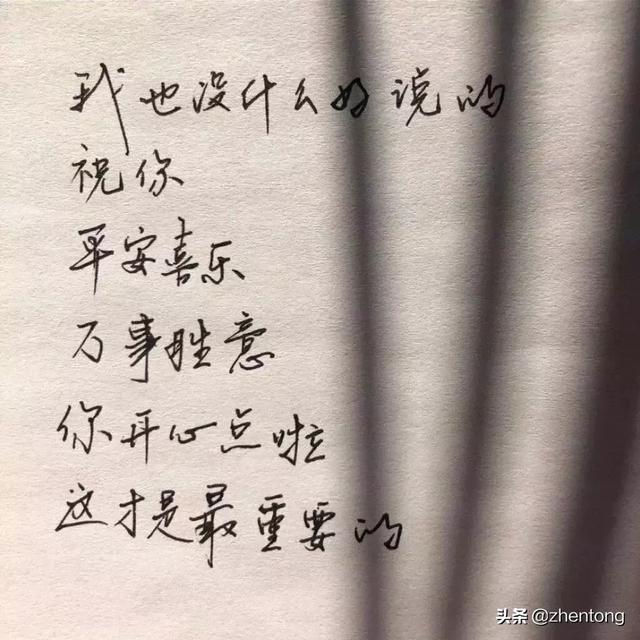 我也没什么好说的
祝你
平安喜乐
万事胜意
你开心点啦
这才是最重要的
头条 @zhentong